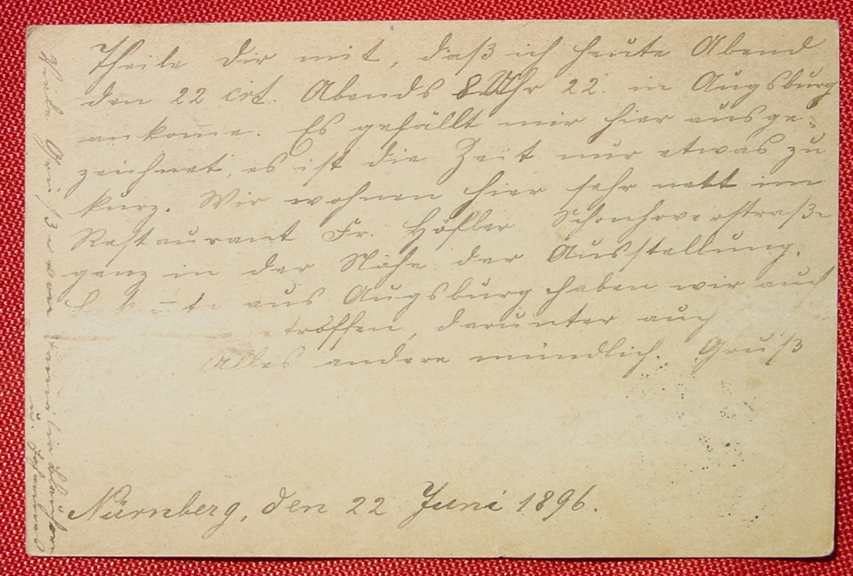 Theile Dir mit, daß ich heute Abend
den 22 crt. Abends 8 Uhr 22 in Augsburg
ankom̄e. Es gefällt mir hier ausge-
zeichnet, es ist die Zeit nur etwas zu
kurz. Wir wohnen hier sehr nett im
Restaurant Fr. Höfler Schonhoverstraße
ganz in der Nähe der Ausstellung.
aus Augsburg haben wir auch
troffen, darunter auch
Alles andere mündlich. Gruß
Nürnberg, den 22 Juni 1896.